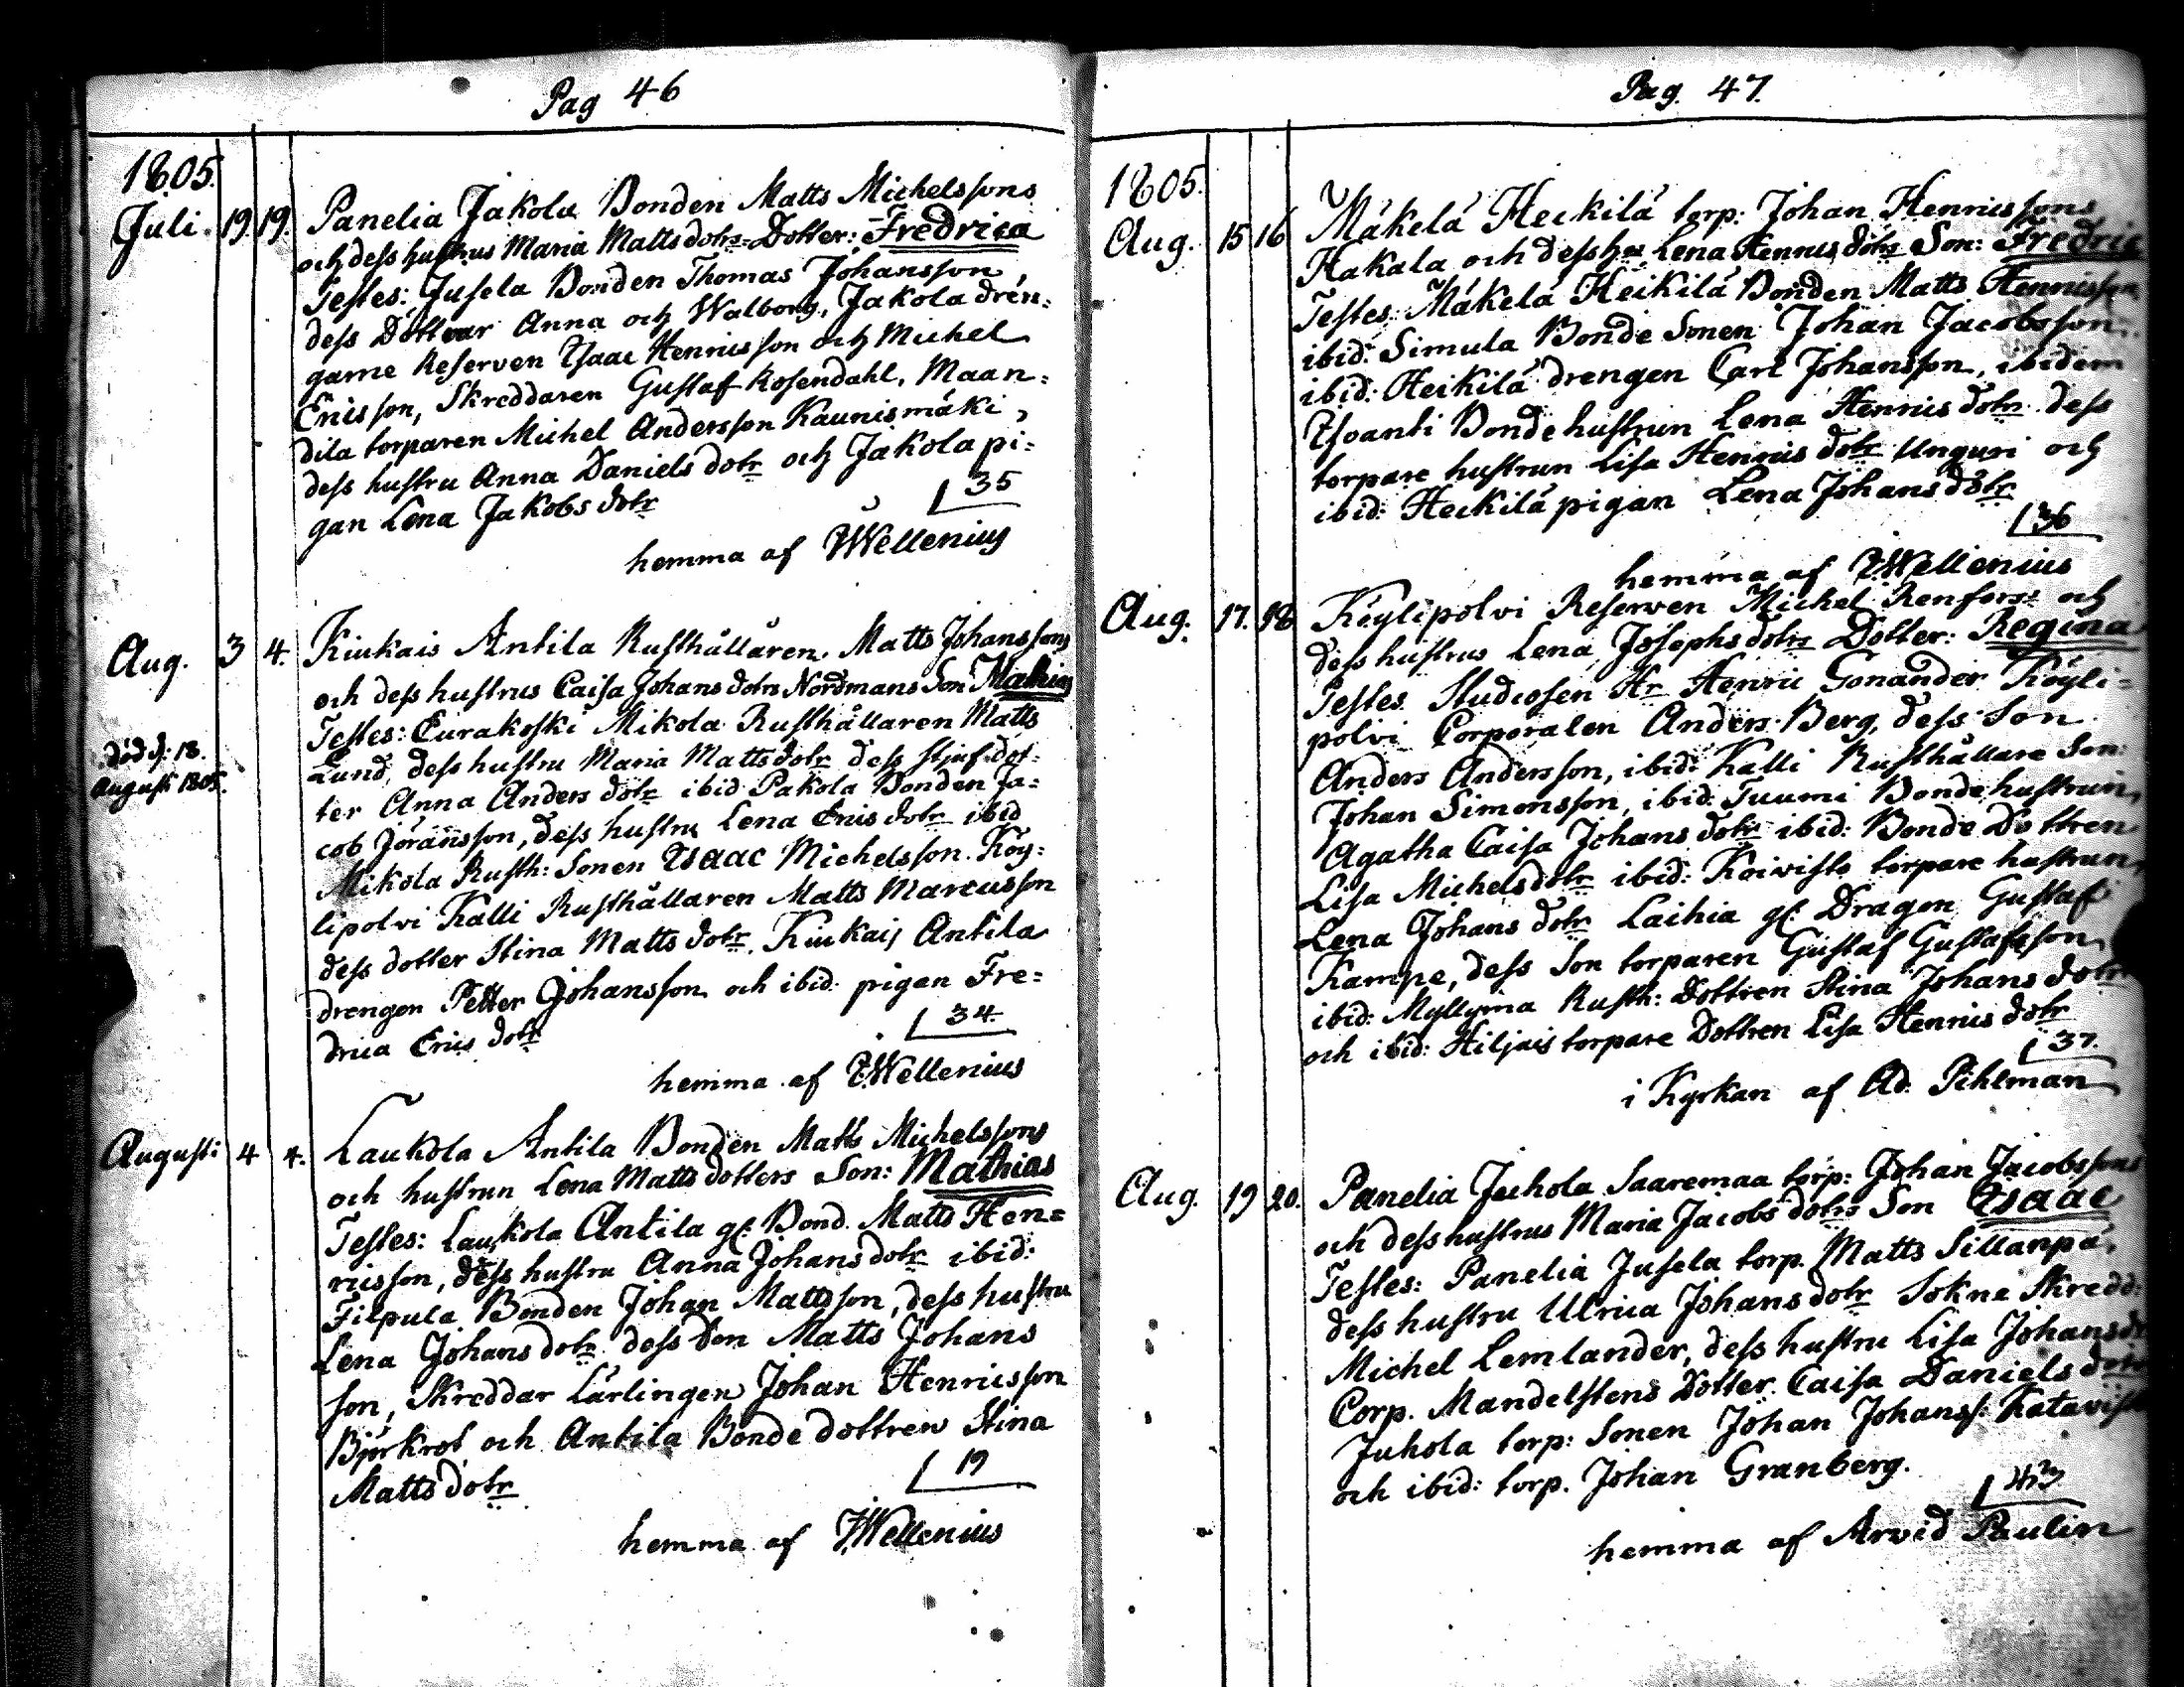 Pag 46
1805.
Juli. 19. 19. Panelia Jakola Bonden Matts Michelssons
och dess hustrus Maria Matts dotrs Dotter: Fredrica
Testes: Jusela Bonden Thomas Johansson,
dess Döttrar Anna och Walborg, Jakola drän=
garne Reserven Isaac Henricsson och Michel
Ericsson, Skreddaren Gustaf Rosendahl, Maan=
dila torparen Michel Andersson Kaunismäki,
dess hustru Anna Daniels dotr och Jakola pi=
gan Lena Jakobs dotr
35
hemma af JWellenius
Aug. 3 4. Kiukais Antila Rusthållaren Matts Johanssons
och dess hustrus Caisa Johans dotrs Nordmans Son Mathias
Testes: Eurakoski Mikola Rusthållaren Matts
död d. 18.
Lund, dess hustru Maria Matts dotr dess stjuf dot=
Augusti 1805.
ter Anna Anders dotr ibid Pakola Bonden Ja=
cob Jöransson, dess hustru Lena Erics dotr ibid
Mikola Rusth: Sonen Isaac Michelsson. Köy=
lipolvi Kalli Rusthållaren Matts Marcusson
dess dotter Stina Matts dotr. Kiukais Antila
drengen Petter Johansson och ibid. pigan Fre=
drica Erics dotr
34.
hemma af JWellenius
Augusti 4 4. Laukola Antila Bonden Matts Michelssons
och hustrun Lena Matts dotters Son: Mathias
Testes: Laukola Antila gl. Bond. Matts Hen=
ricsson, dess hustru Anna Johans dotr ibid:
Filpula Bonden Johan Mattsson, dess hustru
Lena Johans dotr dess Son Matts Johans
son, Skreddar Lärlingen Johan Henricsson
Björkrot och Antila Bonde dottren Stina
Matts dotr
19
hemma af JWellenius
Pag. 47.
1805.
Aug. 15 16 Mäkelä Heikilä torp: Johan Henricssons
Hakala och dess h: Lena Henrics dotrs Son: Fredric
Testes: Mäkelä Heikilä Bonden Matts Henricsson
ibid: Simula Bonde Sonen Johan Jacobsson
ibid: Heikilä drengen Carl Johansson, ibidem
Isoanti Bonde hustrun Lena Henrics dotr dess
torpare hustrun Lisa Henrics dotr Unguri och
ibid: Heikilä pigan Lena Johans dotr
36
hemma af JWellenius
Aug. 17. 18 Köylipolvi Reserven Michel Renfors och
dess hustrus Lena Josephs dotrs Dotter: Regina
Testes Studiosen Hr Henric Gonander Köyli=
polvi Corporalen Anders Berg, dess Son
Anders Andersson, ibid: Kalli Rusthållare Son:
Johan Simonsson, ibid: Tuumi Bonde hustrun,
Agatha Caisa Johans dotr ibid: Bonde Dottren
Lisa Michels dotr ibid: Koivisto torpare hustrun,
Lena Johans dotr Laihia gl. Dragon Gustaf
Kampe, dess Son torparen Gustaf Gustafsson,
ibid: Myllyma Rusth: Dottren Stina Johans dotr
och ibid: Hiljais torpare Dottren Lisa Henrics dotr
37.
i Kyrkan af Ad. Pihlman
Aug. 19 20. Panelia Juhola Saaremaa torp: Johan Jacobssons
och dess hustrus Maria Jacobs dotrs Son Isaac
Testes: Panelia Jusela torp. Matts Sillanpä,
dess hustru Ulrica Johans dotr Sokne Skredd:
Michel Lemlander, dess hustru Lisa Johans dr
Corp. Mandelstens Dotter Caisa Daniels dotr
Juhola torp: Sonen Johan Johanss:
och ibid: torp. Johan Granberg.
hemma af Arvid Paulin